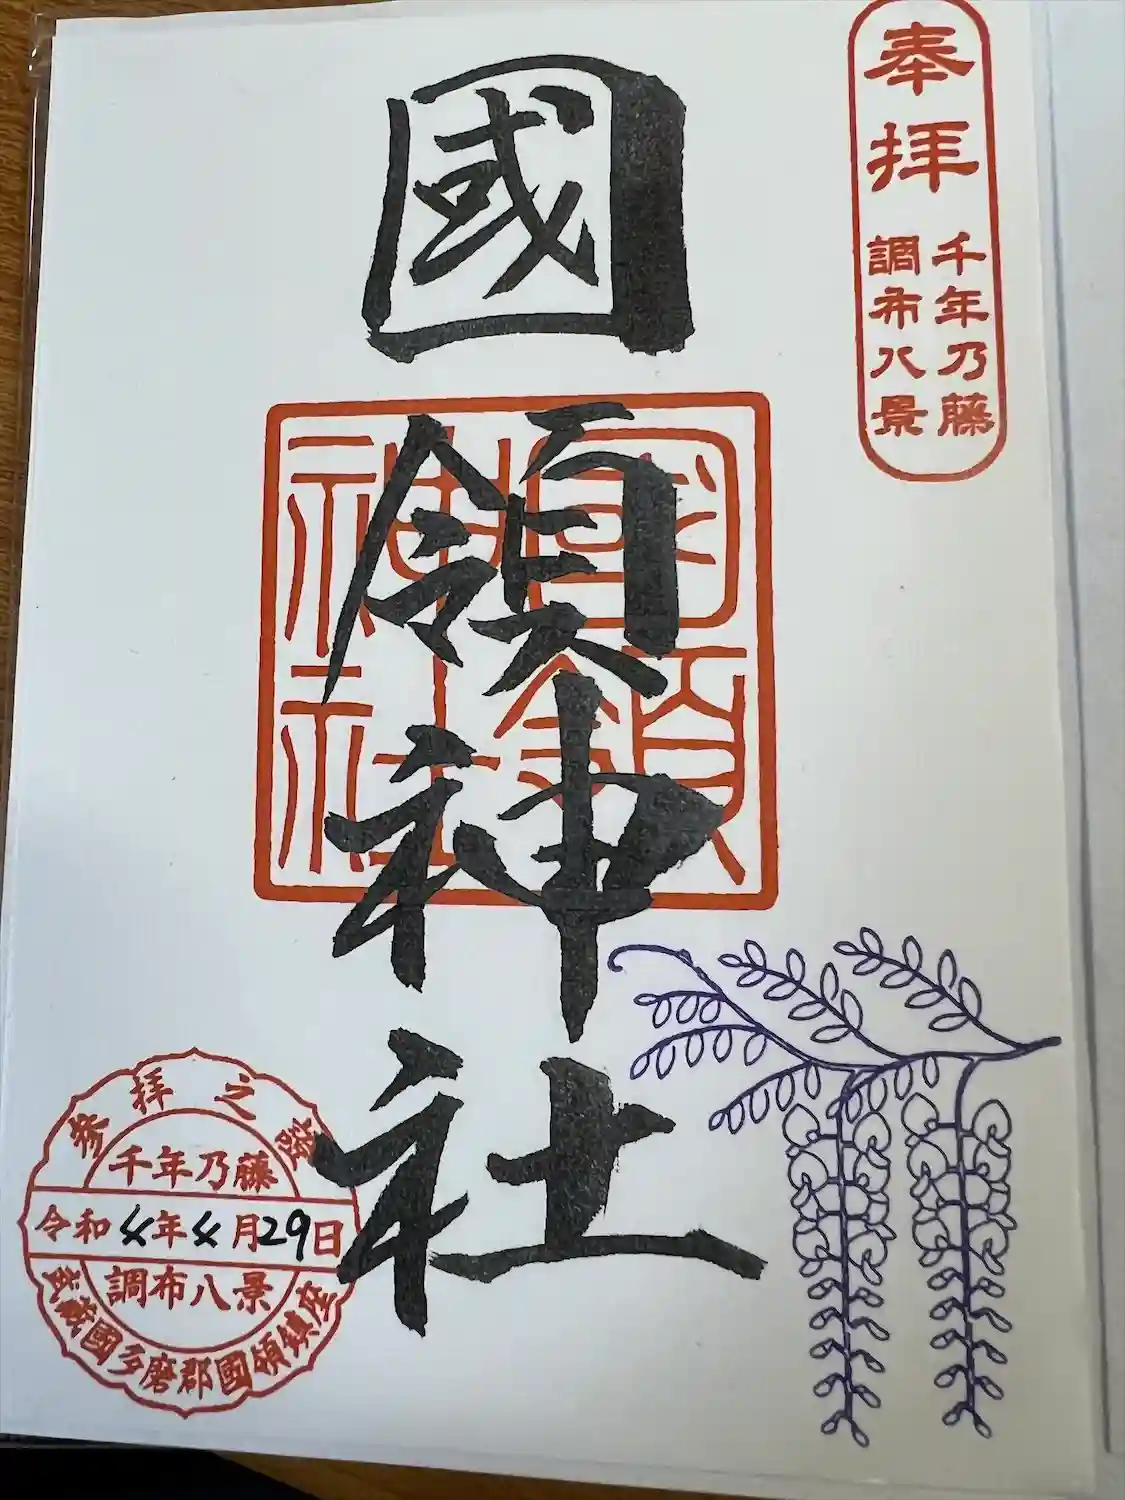 奉拝
千年乃藤
調布八景
國領神社
國領
神社
参拝之證
千年乃藤
令和4年4月29日
調布八景
武蔵國多磨郡國領鎮座